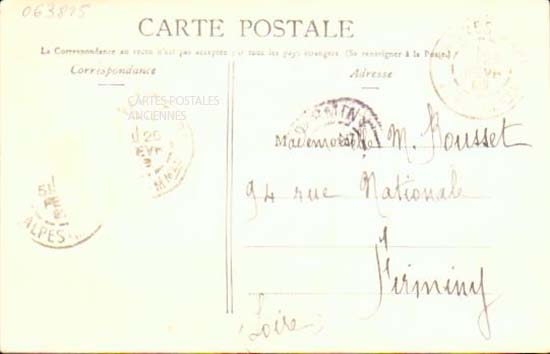 063815
CARTE POSTALE
La Correspondance au recto n'est pas acceptée par tous les pays étrangers (Se renseigner à la Poste)
Correspondance
Adresse
CARTES POSTALES
ANCIENNES
Mademoiselle M. Rousset
94 rue Nationale
Firminy
(Loire)
ALPES